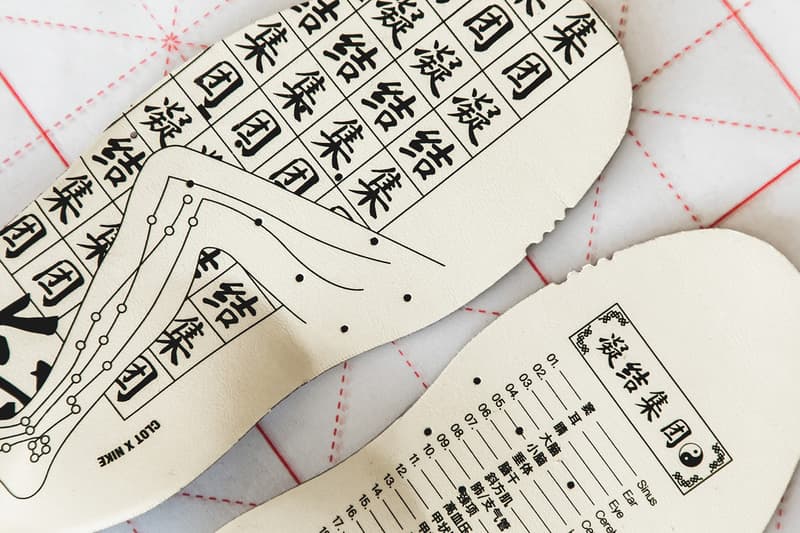 团 集 结 凝 团 集 结
团 集
团 集 结 凝
团 集 结 凝 团
集 结 凝 团 集
团 集 结
CLOT X NIKE
凝结集团
01. 窦 Sinus
02. 耳 Ear
03. 睛 Eye
04. 大脑
05. 小脑
06. 垂体
07. 脑干
08. 斜方肌
09. 肺/支气管
10.
11. 高血压
12.
13.
14.
15.
16.
17.